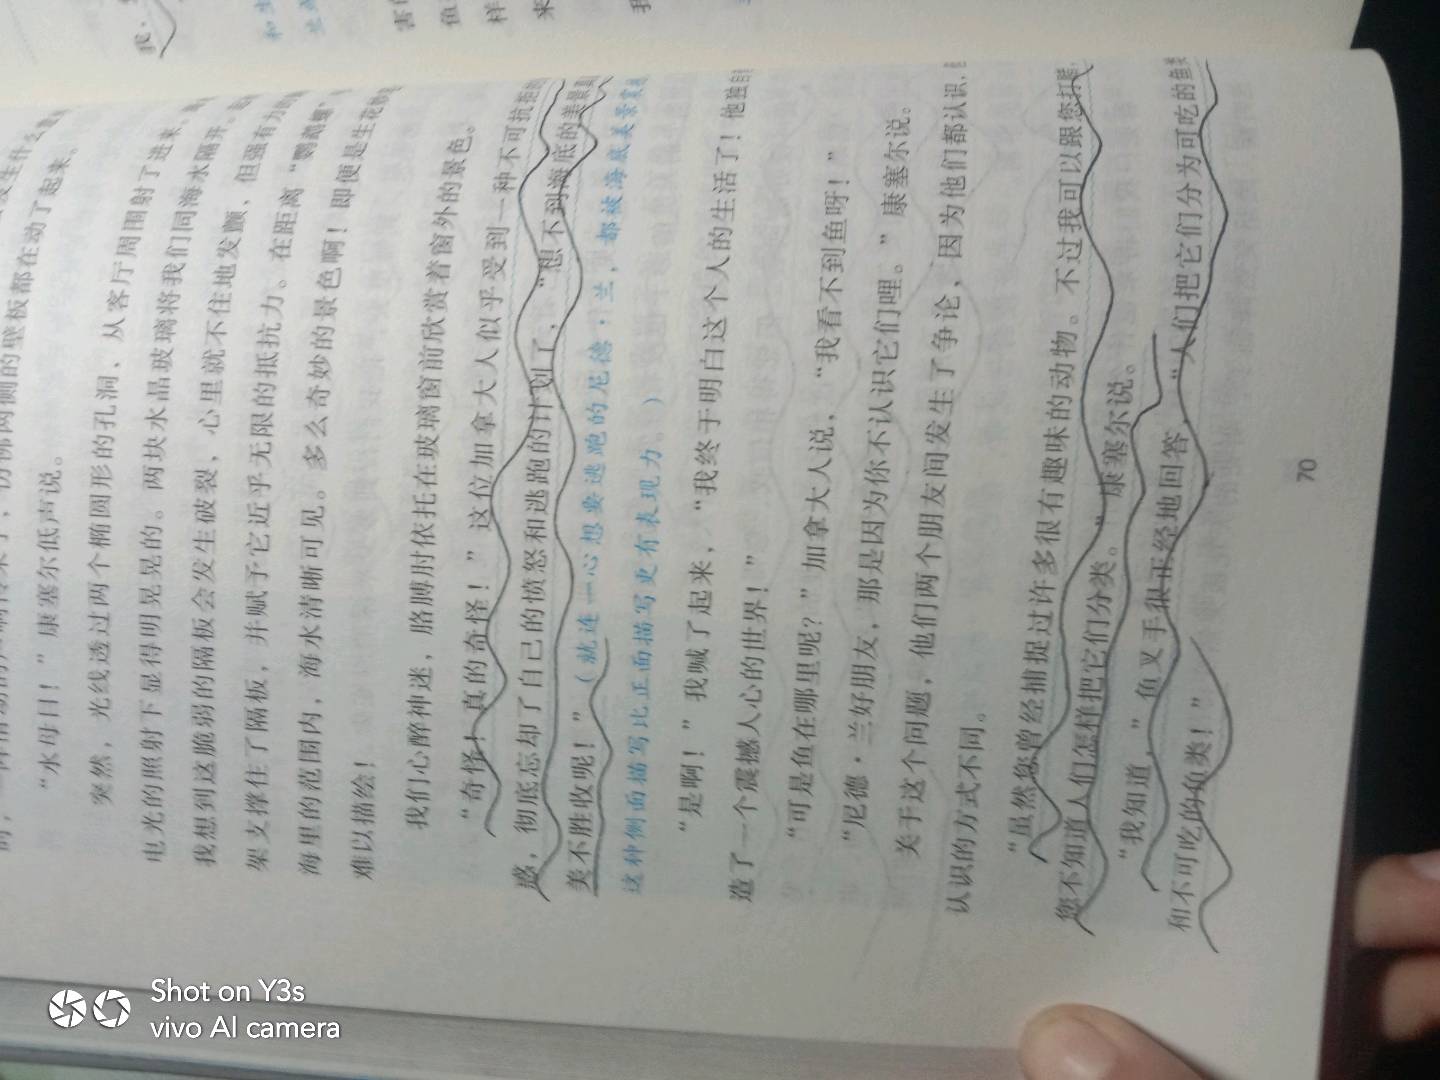 壁板都在动了起来。
“水母目！”康塞尔低声说。
突然，光线透过两个椭圆形的孔洞，从客厅周围射了进来。
电光的照射下显得明晃晃的。两块水晶玻璃将我们同海水隔开。
我想到这脆弱的隔板会发生破裂，心里就不住地发颤，但强有力的
架支撑住了隔板，并赋予它近乎无限的抵抗力。在距离“鹦鹉螺”
海里的范围内，海水清晰可见。多么奇妙的景色啊！即便是生花妙
难以描绘！
我们心醉神迷，胳膊肘依托在玻璃窗前欣赏着窗外的景色。
“奇怪！真的奇怪！”这位加拿大人似乎受到一种不可抗拒的
惑，彻底忘却了自己的愤怒和逃跑的计划了，“想不到海底的美景真
美不胜收呢！”（就连一心想要逃跑的尼德·兰，都被海底美景
这种侧面描写比正面描写更有表现力。）
“是啊！”我喊了起来，“我终于明白这个人的生活了！他独自
造了一个震撼人心的世界！”
“可是鱼在哪里呢？”加拿大人说，“我看不到鱼呀！”
“尼德·兰好朋友，那是因为你不认识它们哩。”康塞尔说。
关于这个问题，他们两个朋友间发生了争论，因为他们都认识，
认识的方式不同。
“虽然您曾经捕捉过许多很有趣味的动物。不过我可以跟您打赌，
您不知道人们怎样把它们分类。”康塞尔说。
“我知道，”鱼叉手很正经地回答，“人们把它们分为可吃的鱼类
和不可吃的鱼类！”
70
Shot on Y3s
vivo AI camera